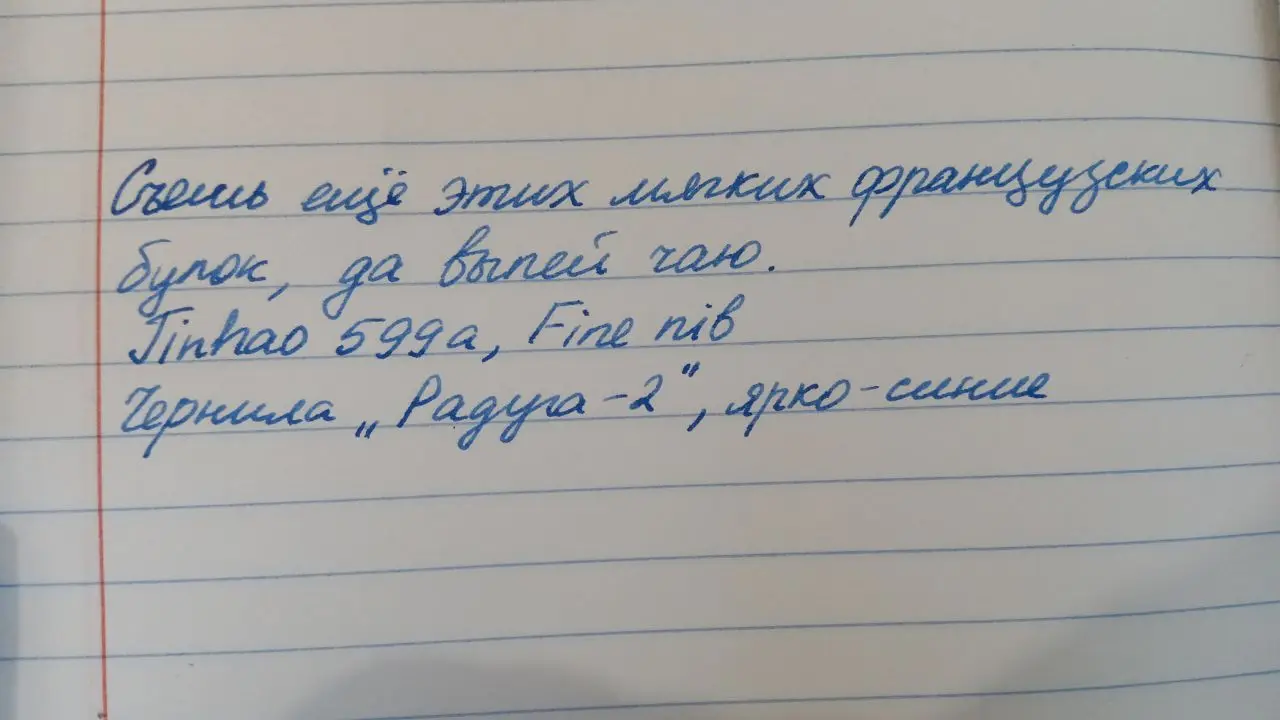 Съешь ещё этих мягких французских
булок, да выпей чаю.
Jinhao 599a, Fine nib
Чернила „Радуга-2”, ярко-синие